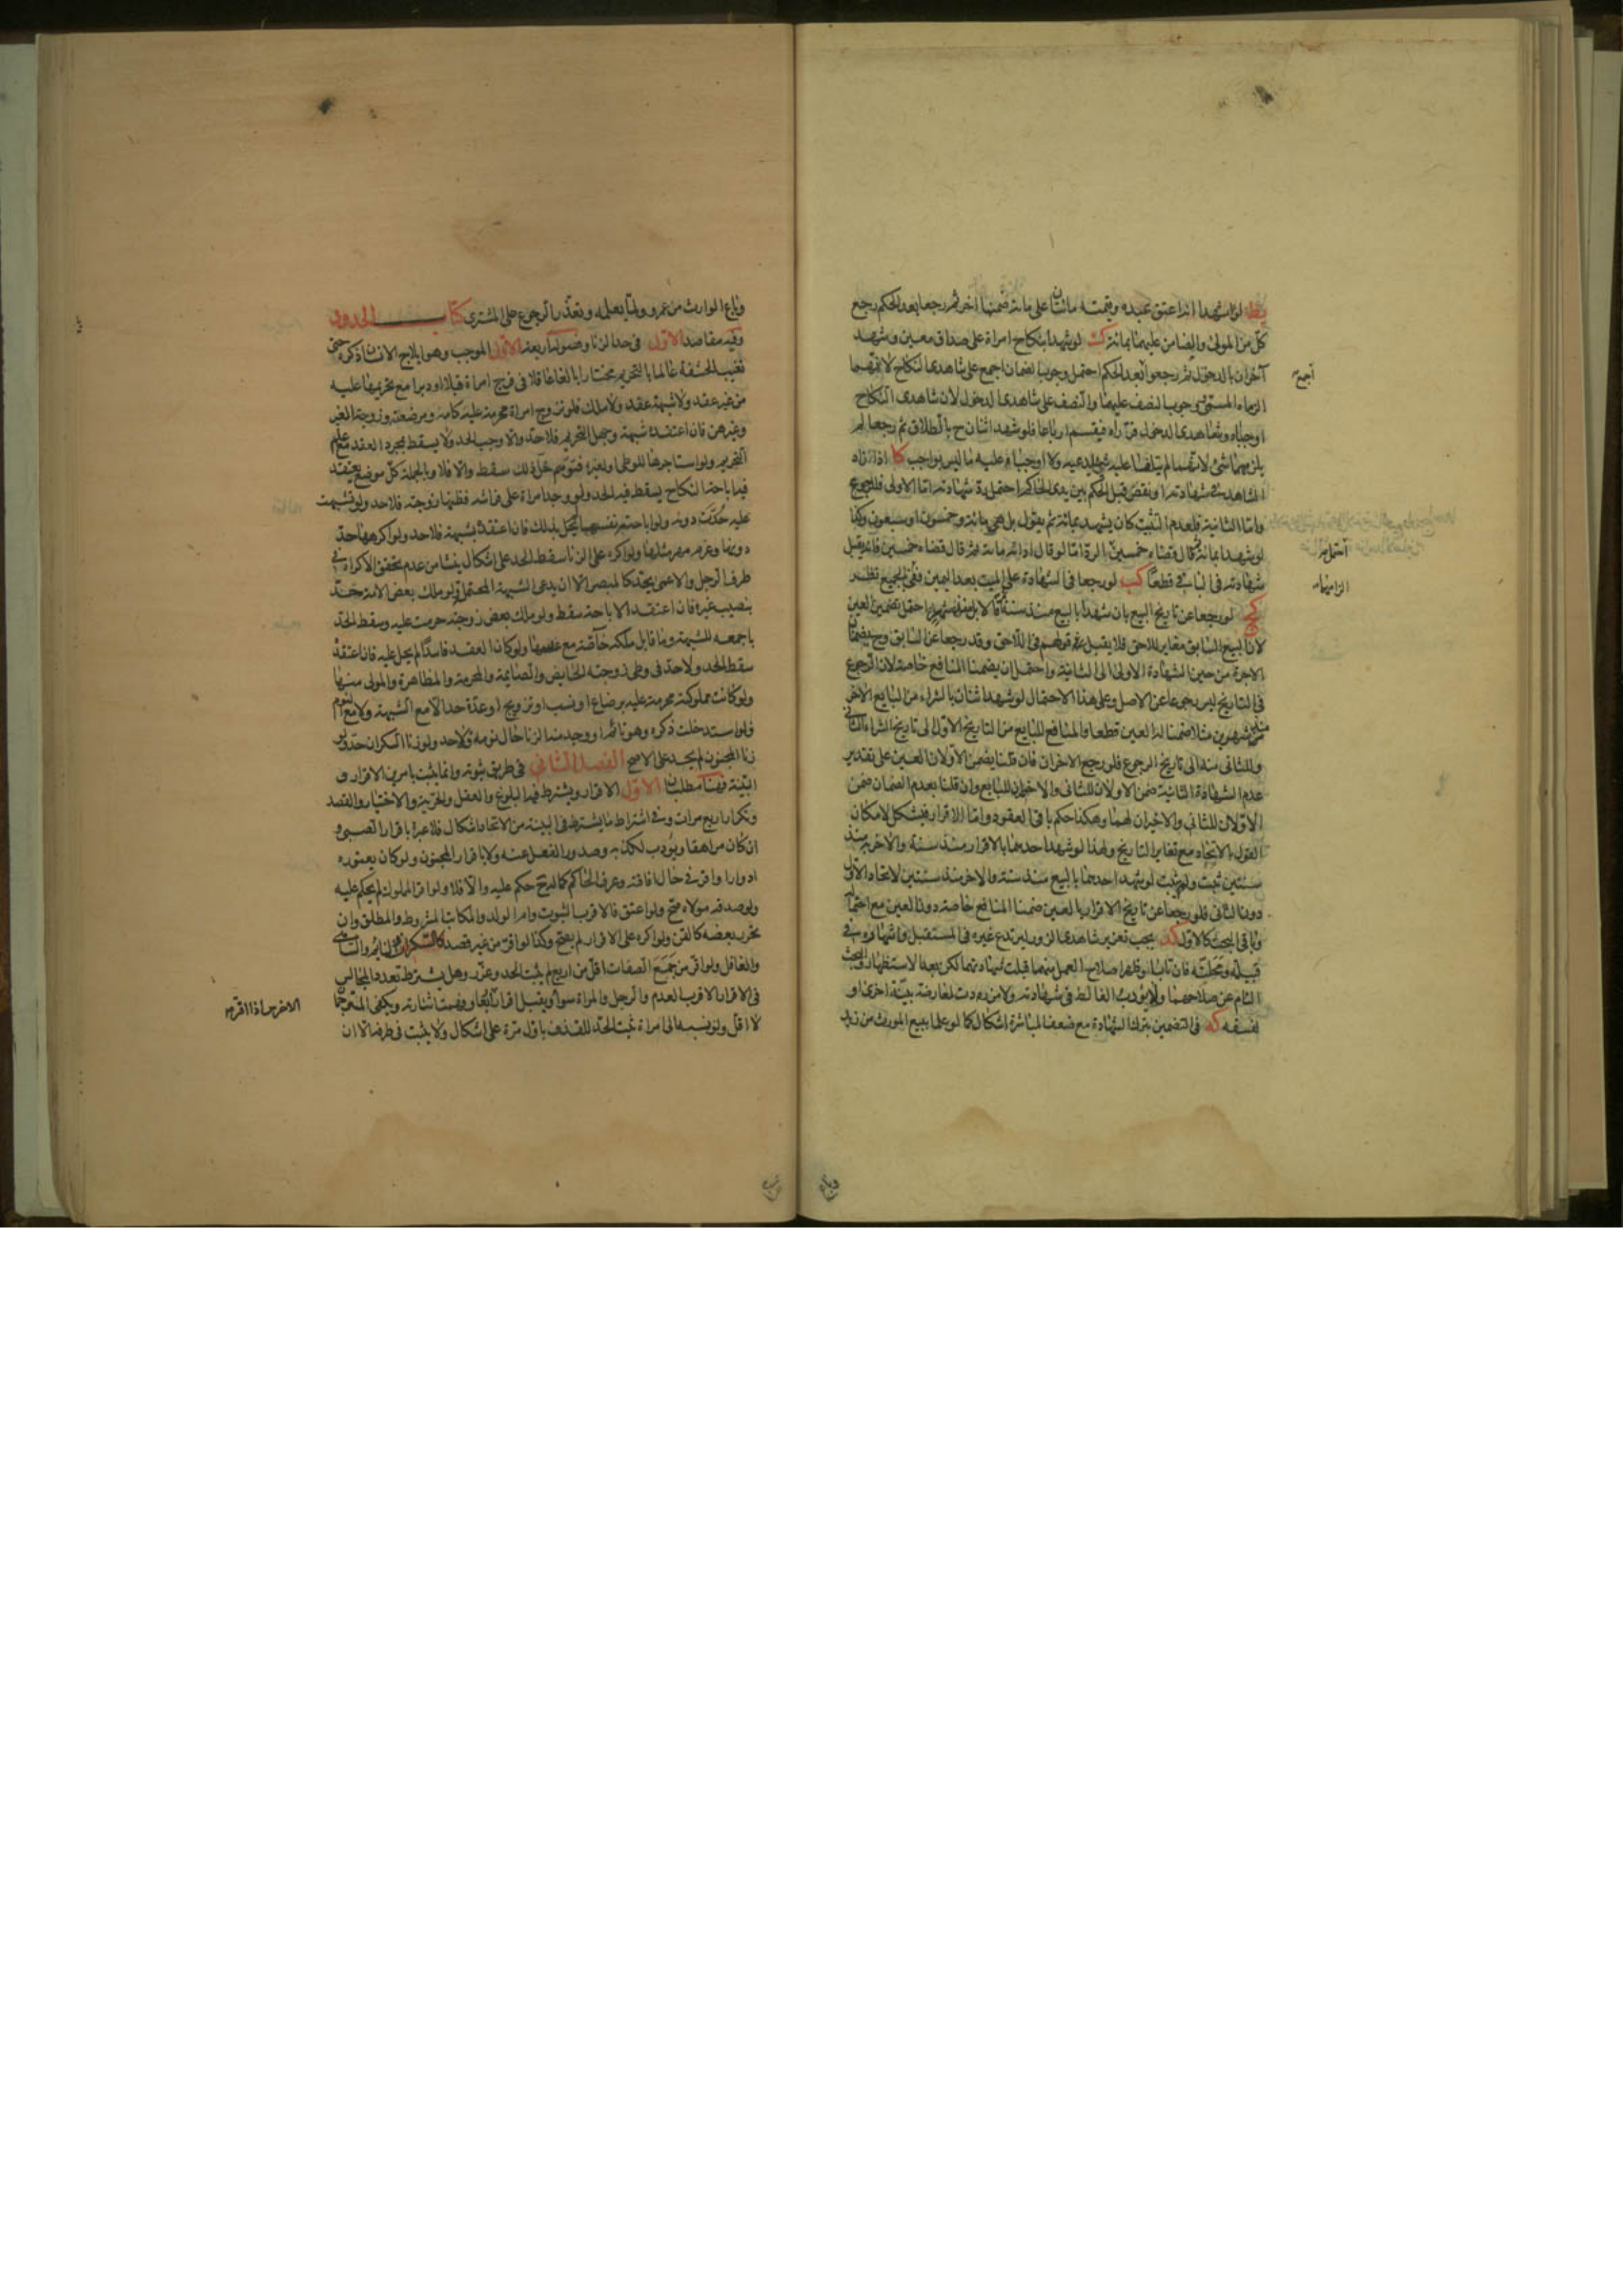 يط لو شهدا انه اعتق عبده وقيمته مائتان على مائة ضمنها اخر ثم رجعا بعد الحكم رجع
كل من المولى والضامن عليهما بمائة ك لو شهدا بنكاح امراة على صداق معين وشهد
آخران بالدخول ثم رجعوا بعد الحكم احتمل وجوب الضمان اجمع على شاهدي النكاح لانهما
الزماه المسمى ووجوب النصف عليهما والنصف على شاهدي الدخول لان شاهدي النكاح
اوجباه وشاهدي الدخول قرراه فيقسم ارباعا فلو شهد اثنان ح بالطلاق ثم رجعا لم
يلزمهما شئ لانهما لم يتلفا عليه شئ يدعيه ولا اوجبا عليه ما ليس بواجب كا اذا زاد
الشاهد في شهادته او نقص قبل الحكم بين يدي الحاكم احتمل رد شهادته اما الاولى فللرجوع
واما الثانية فلعدم التثبت كان يشهد بمائة ثم يقول بل هي مائة وخمسون او سبعون وكذا
لو شهد بمائة ثم قال قضاه خمسين اما لو قال ادانه مائة ثم قال قضاه خمسين فانه يقبل
شهادته في الباقي قطعا كب لو رجعا في الشهادة على الميت بعد اليمين ففي الجميع نظر
كج لو رجعا عن تاريخ البيع بان شهدا بالبيع منذ سنة ثم قالا بل منذ شهر احتمل تضمين العين
لان البيع السابق مغاير للاحق فلا يقبل قولهم في اللاحق وقد رجعا عن السابق وح يضمنان
الاجرة من حين الشهادة الاولى الى الثانية واحتمل ان يضمنا المنافع خاصة لان الرجوع
في التاريخ ليس رجوعا عن الاصل وعلى هذا الاحتمال لو شهد اثنان بالشراء من البايع الاخر
منذ شهرين مثلا ضمنا له العين قطعا والمنافع للبايع من التاريخ الاول الى تاريخ الشراء الثاني
وللثاني منه الى تاريخ الرجوع فلو رجع الاخران فان قلنا يضمن الاولان العين على تقدير
عدم الشهادة الثانية ضمن الاولان للثاني والاخيران للبايع وان قلنا بعدم الضمان ضمن
الاولان للثاني والاخيران لهما وهكذا حكم باقي العقود واما الاقرار فيشكل لامكان
القول بالاتحاد مع تغاير التاريخ ولهذا لو شهد احدهما بالاقرار منذ سنة والاخر منذ
سنتين ثبت ولم يثبت لو شهد احدهما بالبيع منذ سنة والاخر منذ سنتين لاتحاد الاول
دون الثاني فلو رجعا عن تاريخ الاقرار بالعين ضمنا المنافع خاصة دون العين مع احتماله
وباقي البحث كالاول كد يجب تعزير شاهدي الزور ليرتدع غيره في المستقبل واشهاره في
قبيلته ومحلته فان تابا وظهر اصلاح العمل منهما قبلت شهادتهما لكن بعد الاستظهار والبحث
التام عن صلاحهما ولا يؤدب الغالط في شهادته ولا من ردت لمعارضة بينة اخرى او
لفسقه كه في التضمين بترك الشهادة مع ضعف المباشرة اشكال كما لو علما ببيع المورث من زيد
اجمع
احتمل
الزامهما
وباع
وباع الوارث من عمرو ولما يعلمه وتعذر الرجوع على المشتري كتاب الحدود
وفيه مقاصد الاول في حد الزنا وفصوله اربعة الاول الموجب وهو ايلاج الانسان ذكره حتى
تغيب الحشفة عالما بالتحريم مختارا بالغا عاقلا في فرج امراة قبلا او دبرا مع تحريمها عليه
من غير عقد ولا شبهة عقد ولا ملك فلو تزوج امراة محرمة عليه كامه ومرضعته وزوجة الغير
وغيرهن فان اعتقد شبهة وجهل التحريم فلا حد والا وجب الحد ولا يسقط بمجرد العقد مع علم
التحريم ولو استاجرها للوطى او لغيره فتوهم حل ذلك سقط والا فلا وبالجملة كل موضع يعتقد
فيه اباحة النكاح يسقط فيه الحد ولو وجد امراة على فراشه فظنها زوجته فلا حد ولو تشبهت
عليه حدت دونه ولو اباحته نفسها لم تحل بذلك فان اعتقده بشبهة فلا حد ولو اكرهها حد
دونها وغرم مهر مثلها ولو اكره على الزنا سقط الحد على اشكال ينشا من عدم تحقق الاكراه في
طرف الرجل والاعمى يحد كالمبصر الا ان يدعي الشبهة المحتملة ولو ملك بعض الامة حد
بنصيب غيره فان اعتقد الاباحة سقط ولو ملك بعض زوجته حرمت عليه وسقط الحد
باجمعه للشبهة وما قابل ملكه خاصة مع علمه ولو كان العقد فاسدا لم يحل عليه فان اعتقده
سقط الحد ولا حد في وطى زوجته الحايض والصايمة والمحرمة والمظاهرة والمولى منها
ولو كانت مملوكته محرمة عليه برضاع او نسب او تزويج او عدة حد الا مع الشبهة ولا مع النوم
فلو استدخلت ذكره وهو نائم او وجد منه الزنا حال نومه فلا حد ولو زنا السكران حد ولو
زنا المجنون لم يحد على الاصح الفصل الثاني في طريق ثبوته وانما يثبت بامرين الاقرار و
البينة فهنا مطلبان الاول الاقرار ويشترط فيه البلوغ والعقل والحرية والاختيار والقصد
وتكراره اربع مرات وفي اشتراط ما يشترط في البينة من الاتحاد اشكال فلا عبرة باقرار الصبي و
ان كان مراهقا ويؤدب لكذبه وصدور الفعل عنه ولا باقرار المجنون ولو كان يعتوره
ادوارا واقر في حال افاقته وعرف الحاكم كماله ح حكم عليه والا فلا ولو اقر المملوك لم يحكم عليه
ولو صدقه مولاه صح ولو اعتق فالاقرب الثبوت وام الولد والمكاتب المشروط والمطلق وان
تحرر بعضه كالقن ولو اكره على الاقرار لم يصح وكذا لو اقر من غير قصد كالسكران والنائم والساهي
والغافل ولو اقر من جمع الصفات اقل من اربع لم يثبت الحد وعزر وهل يشترط تعدد المجالس
في الاقرار الاقرب العدم والرجل والمراة سواء ويقبل اقرار الاخرس اذا اقر وفهمت اشارته ويكفي المترجمان
لا اقل ولو نسبه الى امراة ثبت الحد للقذف باول مرة على اشكال ولا يثبت في طرفه الا ان
الاخرس اذا اقر